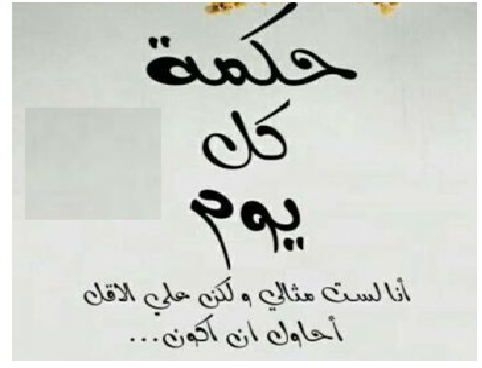 حكمة
كل
يوم
أنا لست مثالي ولكن علي الاقل
أحاول ان أكون...